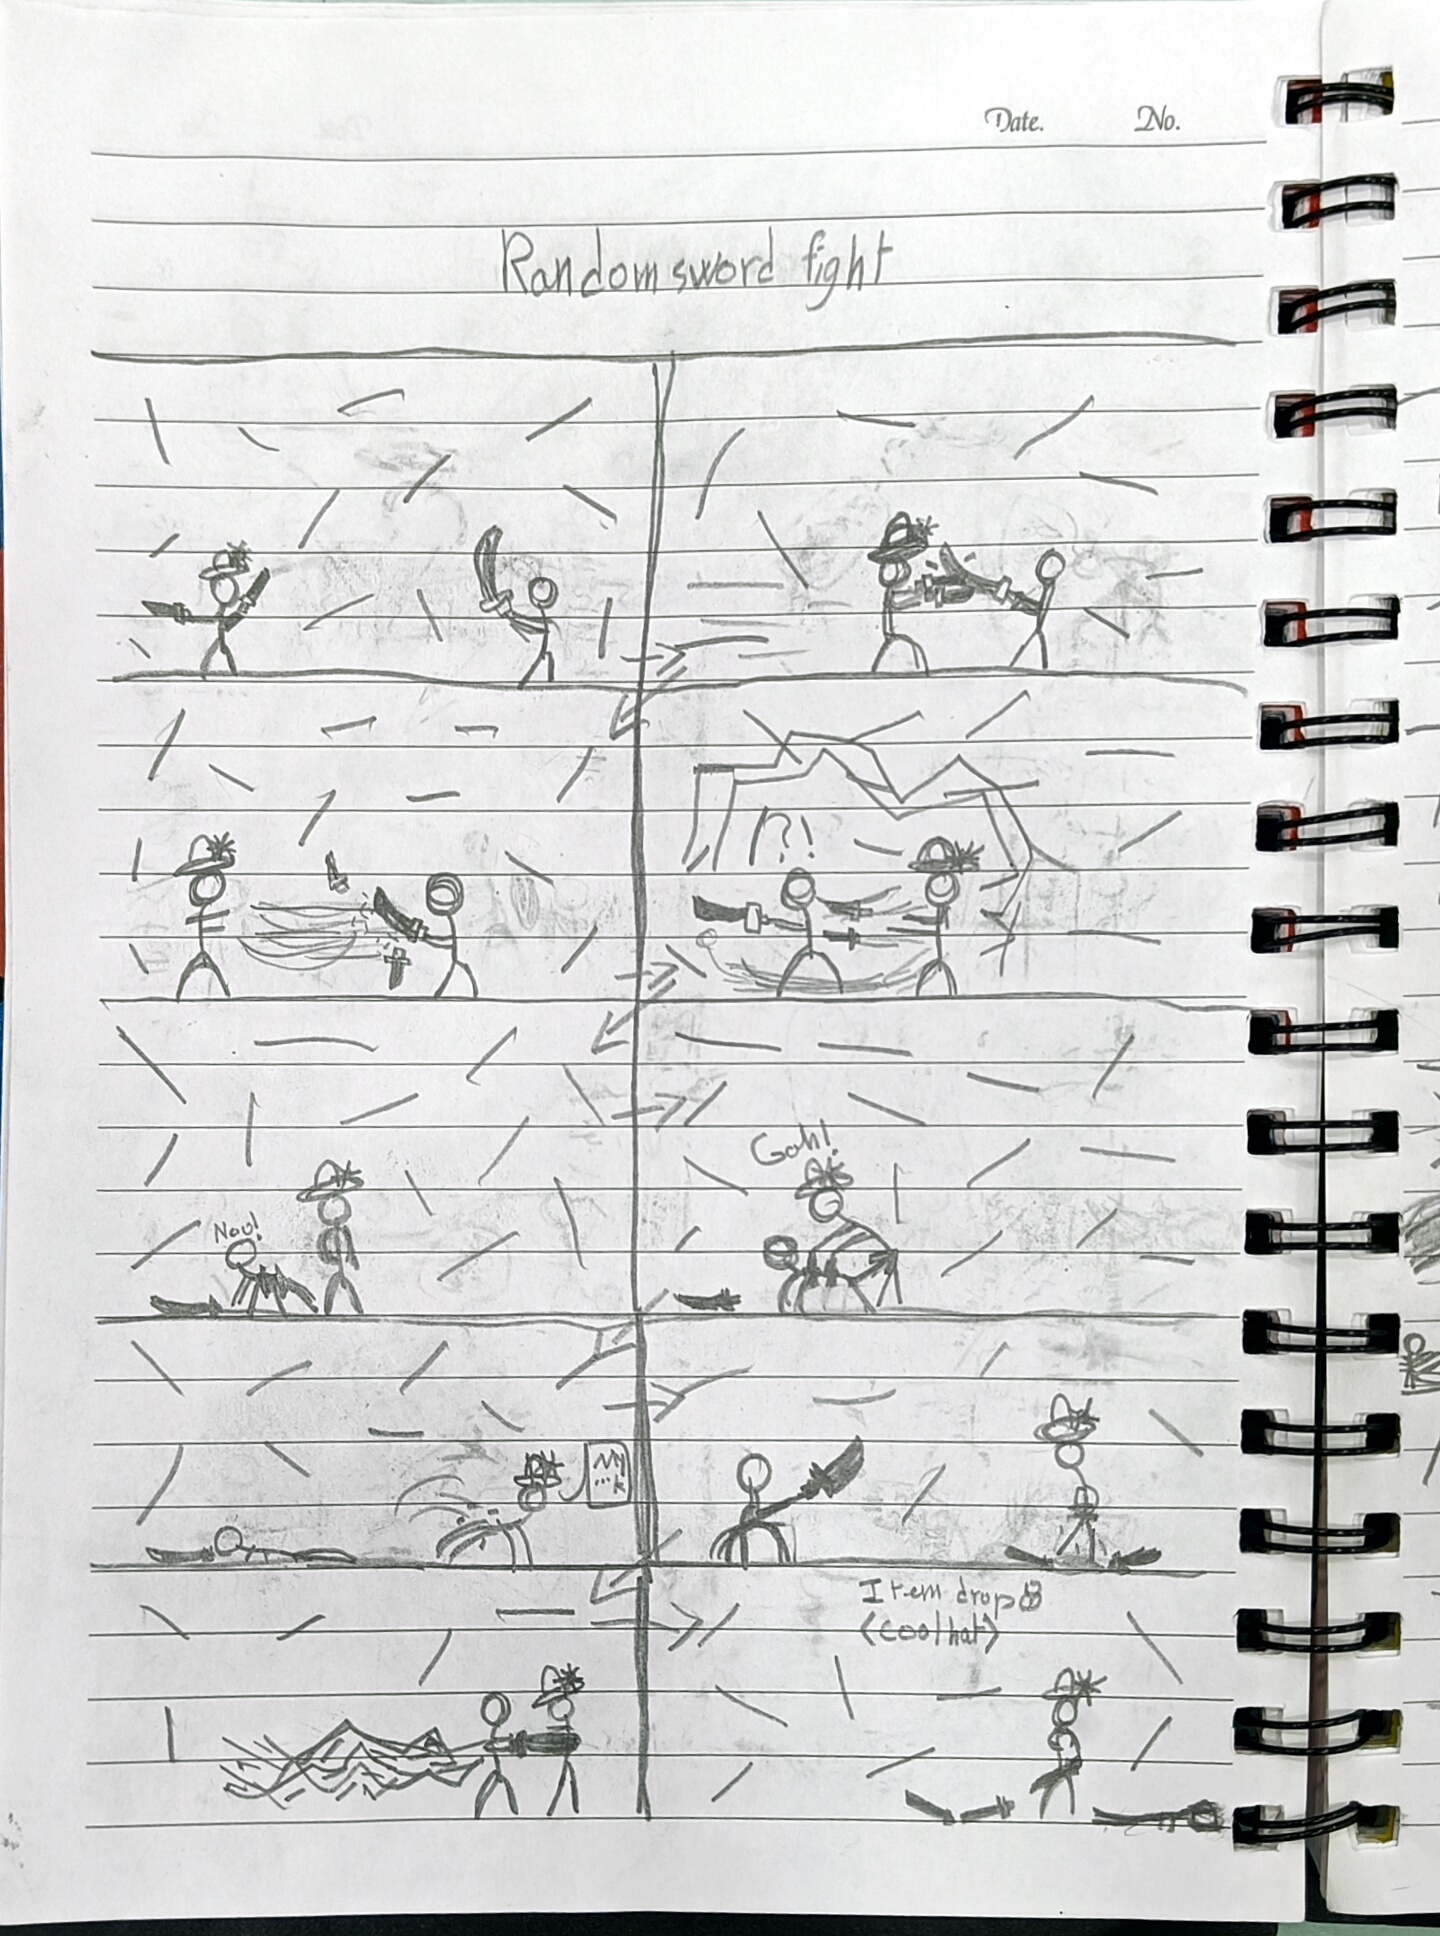 Date. No.
Random sword fight
?!
Nou!
Gah!
My
...k
Item drop
(cool hat)